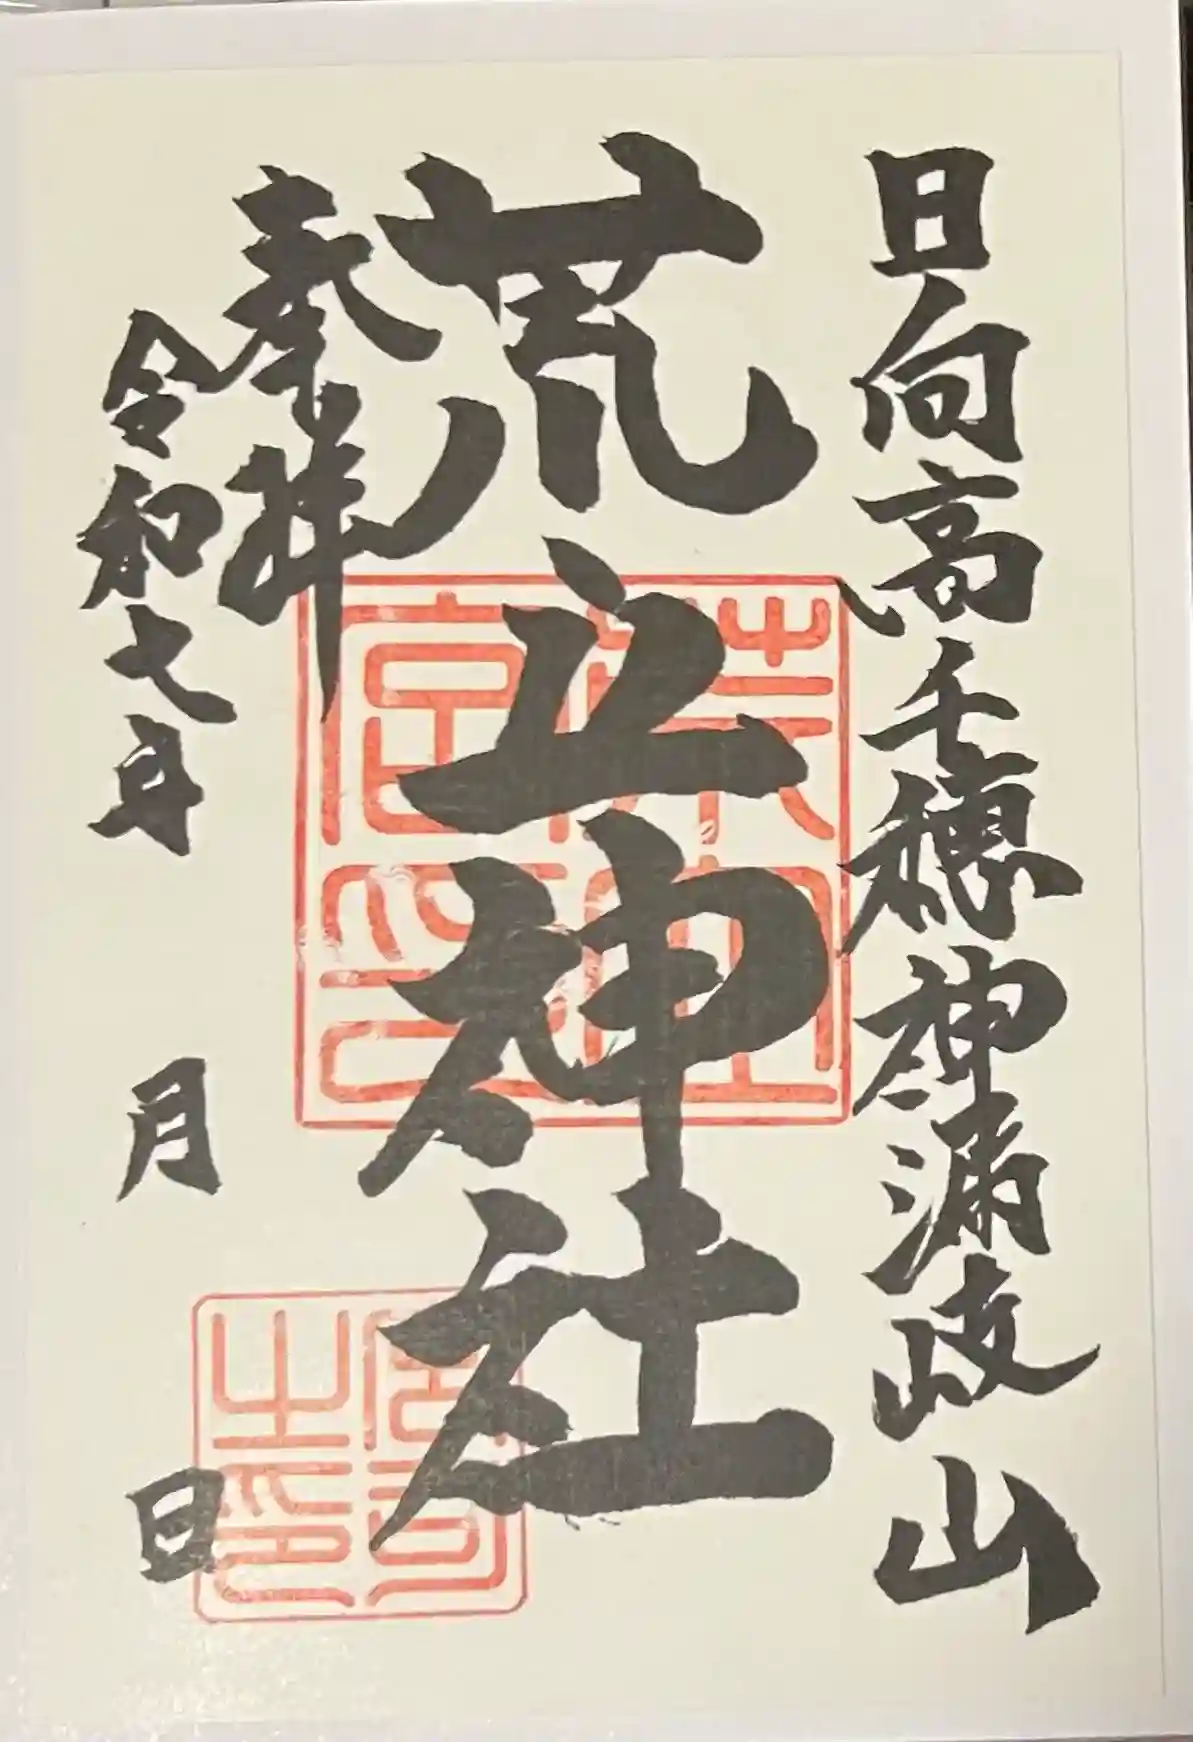 日向高千穂神漏岐山
荒立神社
奉拝
令和七年
月
日
荒立宮印
宮司之印